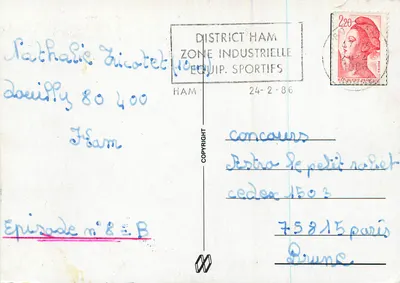 DISTRICT HAM
ZONE INDUSTRIELLE
EQUIP. SPORTIFS
HAM 24-2-86
2,20
Nathalie Tricotet (10 ans)
Douilly 80 400
Ham
Episode n° 8 = B
COPYRIGHT
concours
Astro le petit robot
cedex 1503
75815 paris
Brune